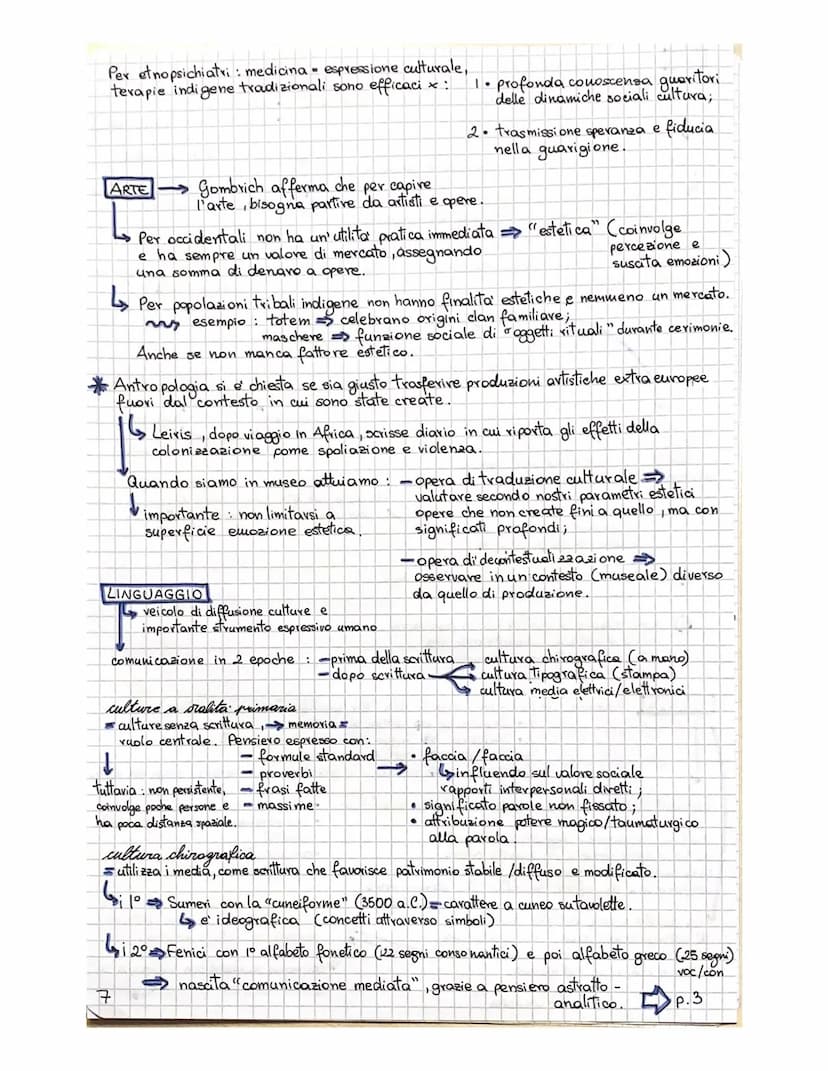 Per etnopsichiatri : medicina = espressione culturale,
terapie indigene tradizionali sono efficaci x :
1 • profonda conoscenza guaritori
delle dinamiche sociali cultura;
2 • trasmissione speranza e fiducia
nella guarigione.
ARTE → Gombrich afferma che per capire
l'arte, bisogna partire da artisti e opere.
↳ Per occidentali non ha un'utilità pratica immediata ⇒ "estetica" (coinvolge
e ha sempre un valore di mercato, assegnando percezione e
una somma di denaro a opere. suscita emozioni)
↳ Per popolazioni tribali indigene non hanno finalità estetiche e nemmeno un mercato.
esempio : totem ⇒ celebrano origini clan familiare;
maschere ⇒ funzione sociale di "oggetti rituali" durante cerimonie.
Anche se non manca fattore estetico.
* Antropologia si è chiesta se sia giusto trasferire produzioni artistiche extraeuropee
fuori dal contesto in cui sono state create.
↳ Leiris, dopo viaggio in Africa, scrisse diario in cui riporta gli effetti della
colonizzazione come spoliazione e violenza.
Quando siamo in museo attuiamo : - opera di traduzione culturale ⇒
valutare secondo nostri parametri estetici
opere che non create fini a quello, ma con
significati profondi;
importante : non limitarsi a
superficie emozione estetica.
- opera di decontestualizzazione ⇒
osservare in un contesto (museale) diverso
da quello di produzione.
LINGUAGGIO
↳ veicolo di diffusione culture e
importante strumento espressivo umano
comunicazione in 2 epoche : - prima della scrittura
- dopo scrittura → cultura chirografica (a mano)
→ cultura Tipografica (stampa)
→ cultura media elettrici/elettronici
culture a oralità primaria
= culture senza scrittura, → memoria =
ruolo centrale. Pensiero espresso con:
- formule standard
- proverbi
- frasi fatte
- massime
→ • faccia/faccia
↳ influendo sul valore sociale
rapporti interpersonali diretti;
• significato parole non fissato;
• attribuzione potere magico/taumaturgico
alla parola.
↓
tuttavia : non persistente,
coinvolge poche persone e
ha poca distanza spaziale.
cultura chirografica
= utilizza i media, come scrittura che favorisce patrimonio stabile /diffuso e modificato.
↳ i 1° ⇒ Sumeri con la "cuneiforme" (3500 a.C.) = carattere a cuneo su tavolette.
↳ è ideografica (concetti attraverso simboli)
↳ i 2° ⇒ Fenici con 1° alfabeto fonetico (22 segni consonantici) e poi alfabeto greco (25 segni)
voc/con
⇒ nascita "comunicazione mediata", grazie a pensiero astratto -
analitico. ⇨ p.3
7